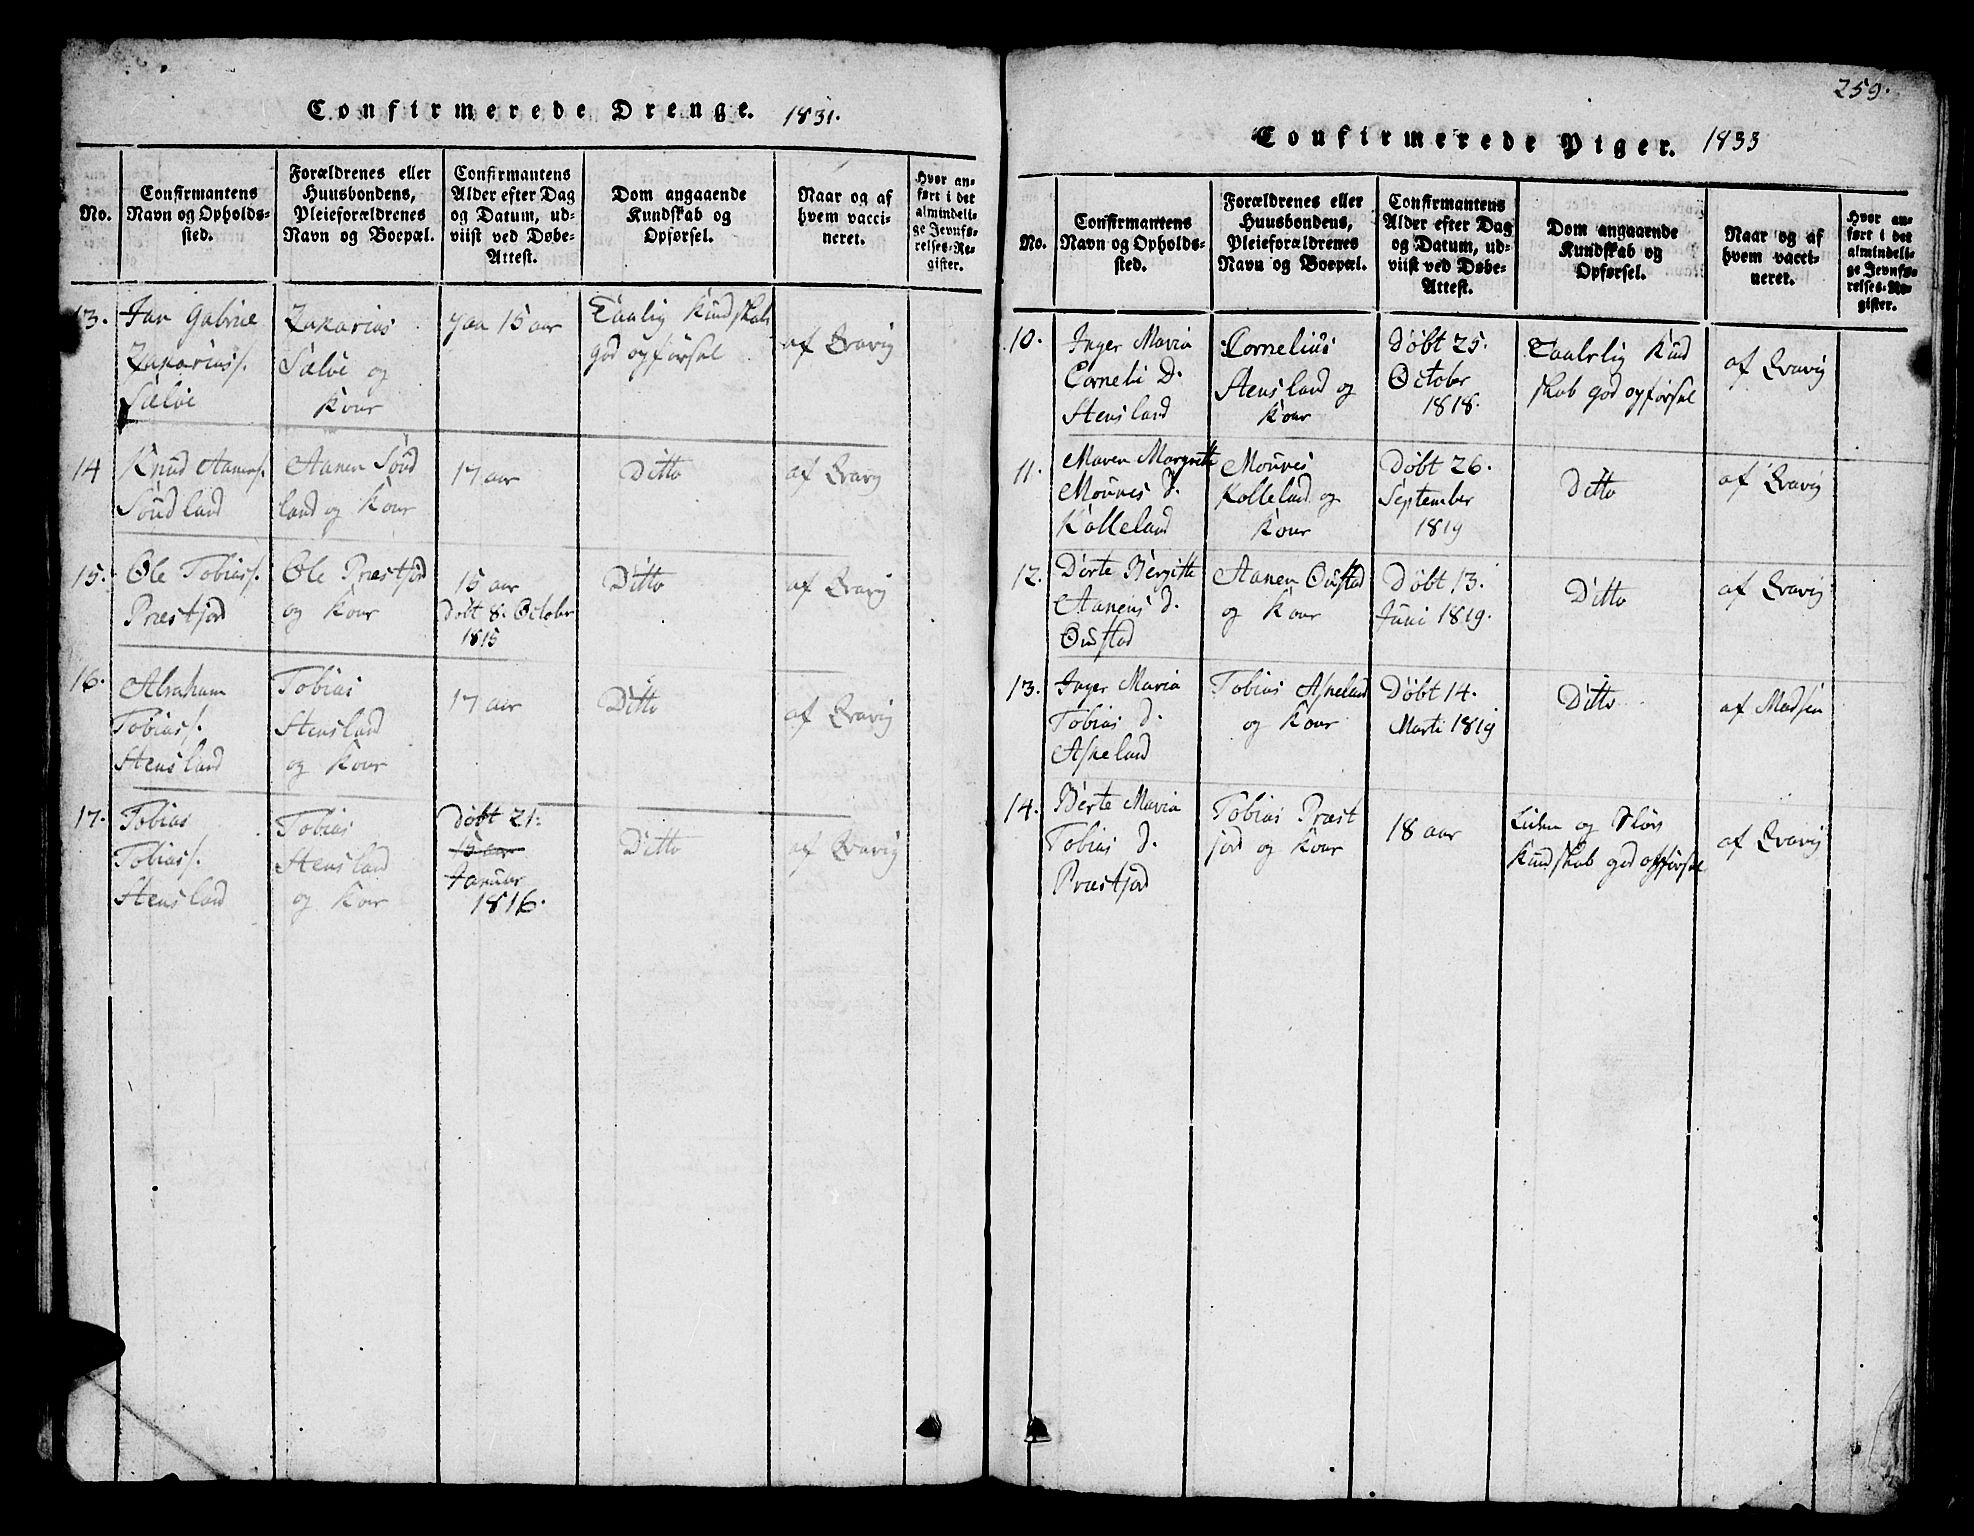 Confirmerede Drenge. 1831.
No.
Confirmantens
Navn og Opholds-
sted.
Forældrenes eller
Huusbondens,
Pleieforældrenes
Navn og Boepæl.
Confirmantens
Alder efter Dag
og Datum, ud-
viist ved Døbe-
Attest.
Dom angaaende
Kundskab og
Opførsel.
Naar og af
hvem vacci-
neret.
Hvor an-
ført i det
almindeli-
ge Jevnfø-
relses-Re-
gister.
13.
Jan Gabriel
Zakariass.
Sælve
Zakarias
Sælve og
Kone
paa 15 aar
Taalig Kundskab
god opførsel
af Qvavig
14
Knud Aanens.
Söudland
Aanen Söud
land og Kone
17 aar
Ditto
af Qvavig
15.
Ole Tobiass.
Præstjord
Ole Præstjord
og Kone
15 aar
Döbt 8. October
1815
Ditto
af Qvavig
16.
Abraham
Tobiass.
Stensland
Tobias
Stensland
og Kone
17 aar
Ditto
af Qvavig
17.
Tobias
Tobiass.
Stensland
Tobias
Stensland
og Kone
Döbt 21.
15 aar
Januar
1816.
Ditto
af Qvavig
259.
Confirmerede Piger. 1833
No.
Confirmantens
Navn og Opholds-
sted.
Forældrenes eller
Huusbondens,
Pleieforældrenes
Navn og Boepæl.
Confirmantens
Alder efter Dag
og Datum, ud-
viist ved Døbe-
Attest.
Dom angaaende
Kundskab og
Opførsel.
Naar og af
hvem vacci-
neret.
Hvor an-
ført i det
almindeli-
ge Jevnfø-
relses-Re-
gister.
10.
Inger Maria
Corneli D.
Stensland
Cornelius
Stensland og
Kone
Döbt 25.
October
1818.
Taalelig Kund
skab god opförsel
af Qvavig
11.
Maren Margrette
Mounes d.
Kolleland
Mounes
Kolleland og
Kone
Döbt 26.
September
1819
Ditto
af Qvavig
12.
Dorte Bergitte
Aanens d.
Oustad
Aanen Oustad
og Kone
Döbt 13.
Juni 1819.
Ditto
af Qvavig
13.
Inger Maria
Tobias d.
Aspeland
Tobias Aspeland
og Kone
Döbt 14.
Marti 1819
Ditto
af Madsen
14.
Berte Maria
Tobias d.
Præstjord
Tobias Præst
jord og Kone
18 aar
Liden og Sløv
Kundskab god opförsel
af Qvavig